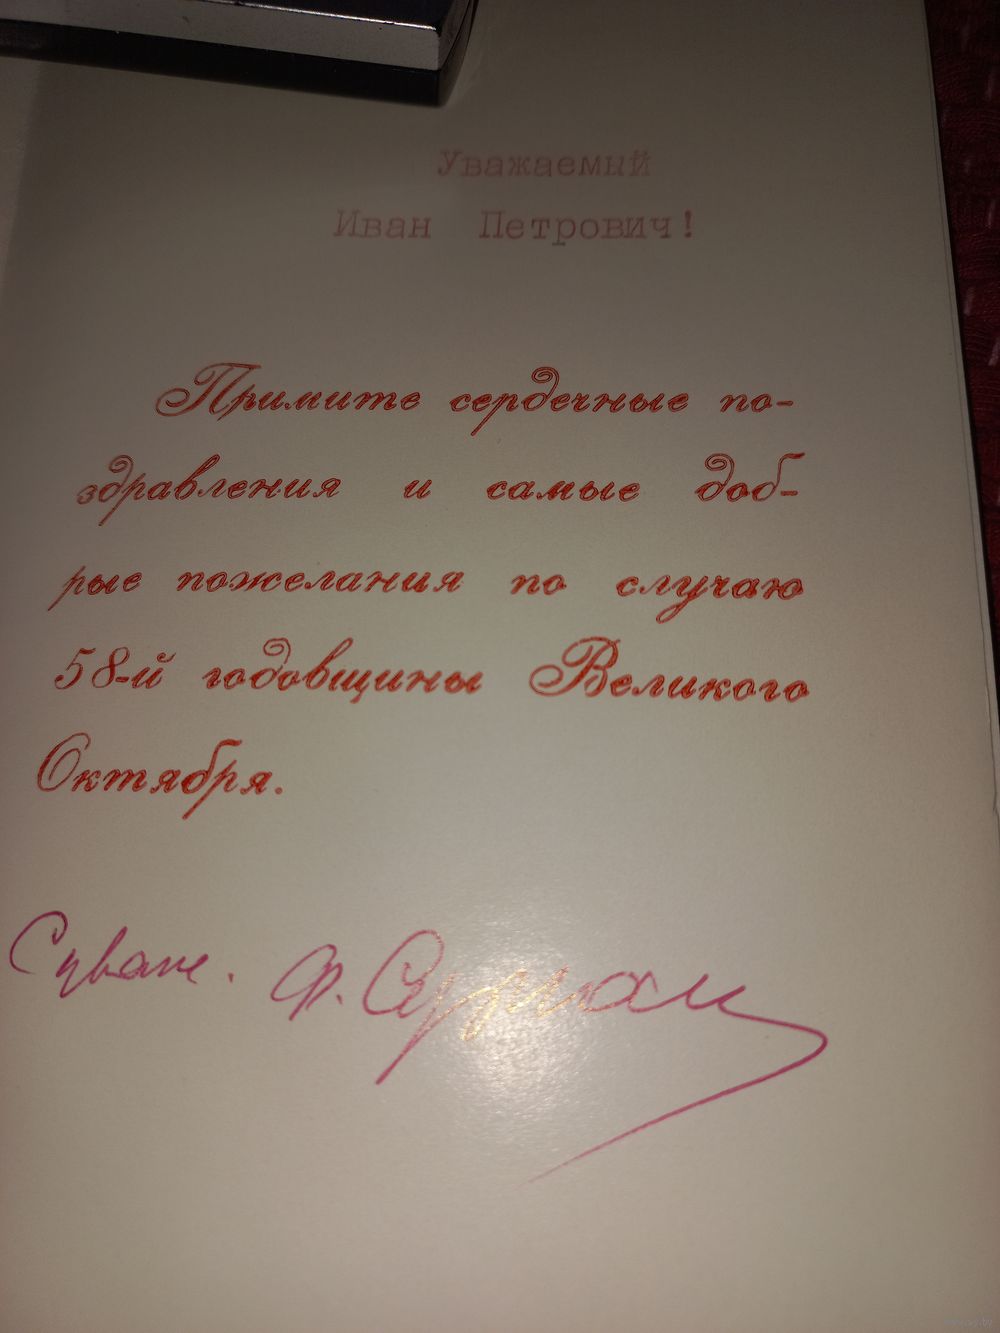 Уважаемый
Иван Петрович!
Примите сердечные по-
здравления и самые доб-
рые пожелания по случаю
58-й годовщины Великого
Октября.
Ф. Сурган